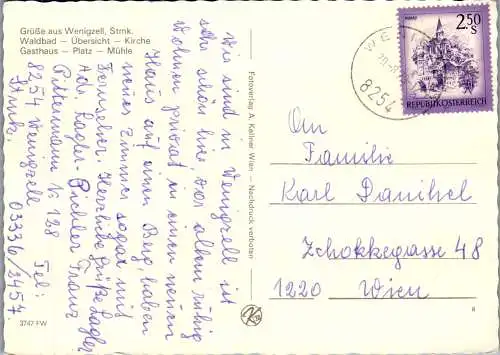 Grüße aus Wenigzell, Stmk.
Waldbad – Übersicht – Kirche
Gasthaus – Platz – Mühle
Wir sind in Wenigzell ist
sehr schön hier, vor allem ruhig
wohnen privat in einen neuen
Haus auf einen Berg, haben
neues Zimmer sogar mit
Fernseher. Herzliche Grüße Lagler
Adr. Lagler - Pichler Franz
Pittermann Nr 188
8254 Wenigzell Tel:
Stmk. 03336/2457.
3747 FW
Fotoverlag A. Kellner Wien – Nachdruck verboten
8254
MURAU
2.50
S
REPUBLIK ÖSTERREICH
An
Familie
Karl Panihel
Zchokkegasse 48
1220 Wien